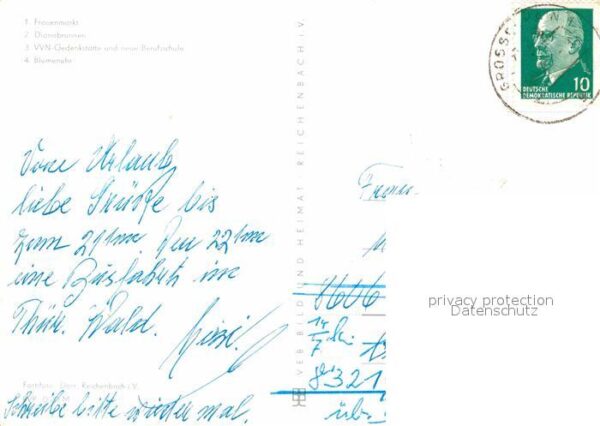 1 Frauenmarkt
2 Dianabrunnen
3 VVN-Gedenkstätte und neue Berufsschule
4 Blumenuhr
Vom Urlaub
liebe Grüße bis
zum 21ten. Den 22ten
eine Busfahrt im
Thür. Wald.
Schreibe bitte wieder mal.
VEB BILD UND HEIMAT REICHENBACH I.V.
GROSS
DEUTSCHE
DEMOKRATISCHE REPUBLIK
10
8606
14/7
8321
privacy protection
Datenschutz
Reichenbach i.V.